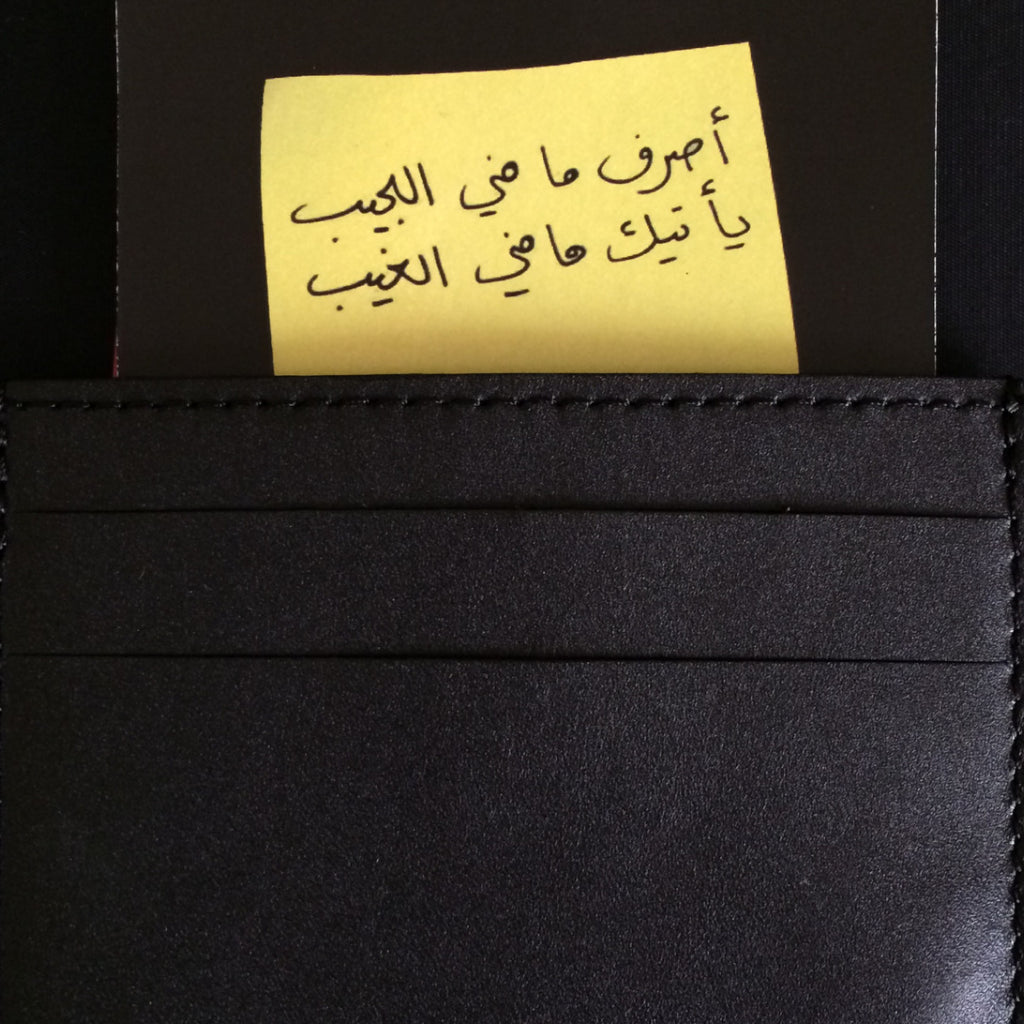 أصرف ما في الجيب
يأتيك ما في الغيب